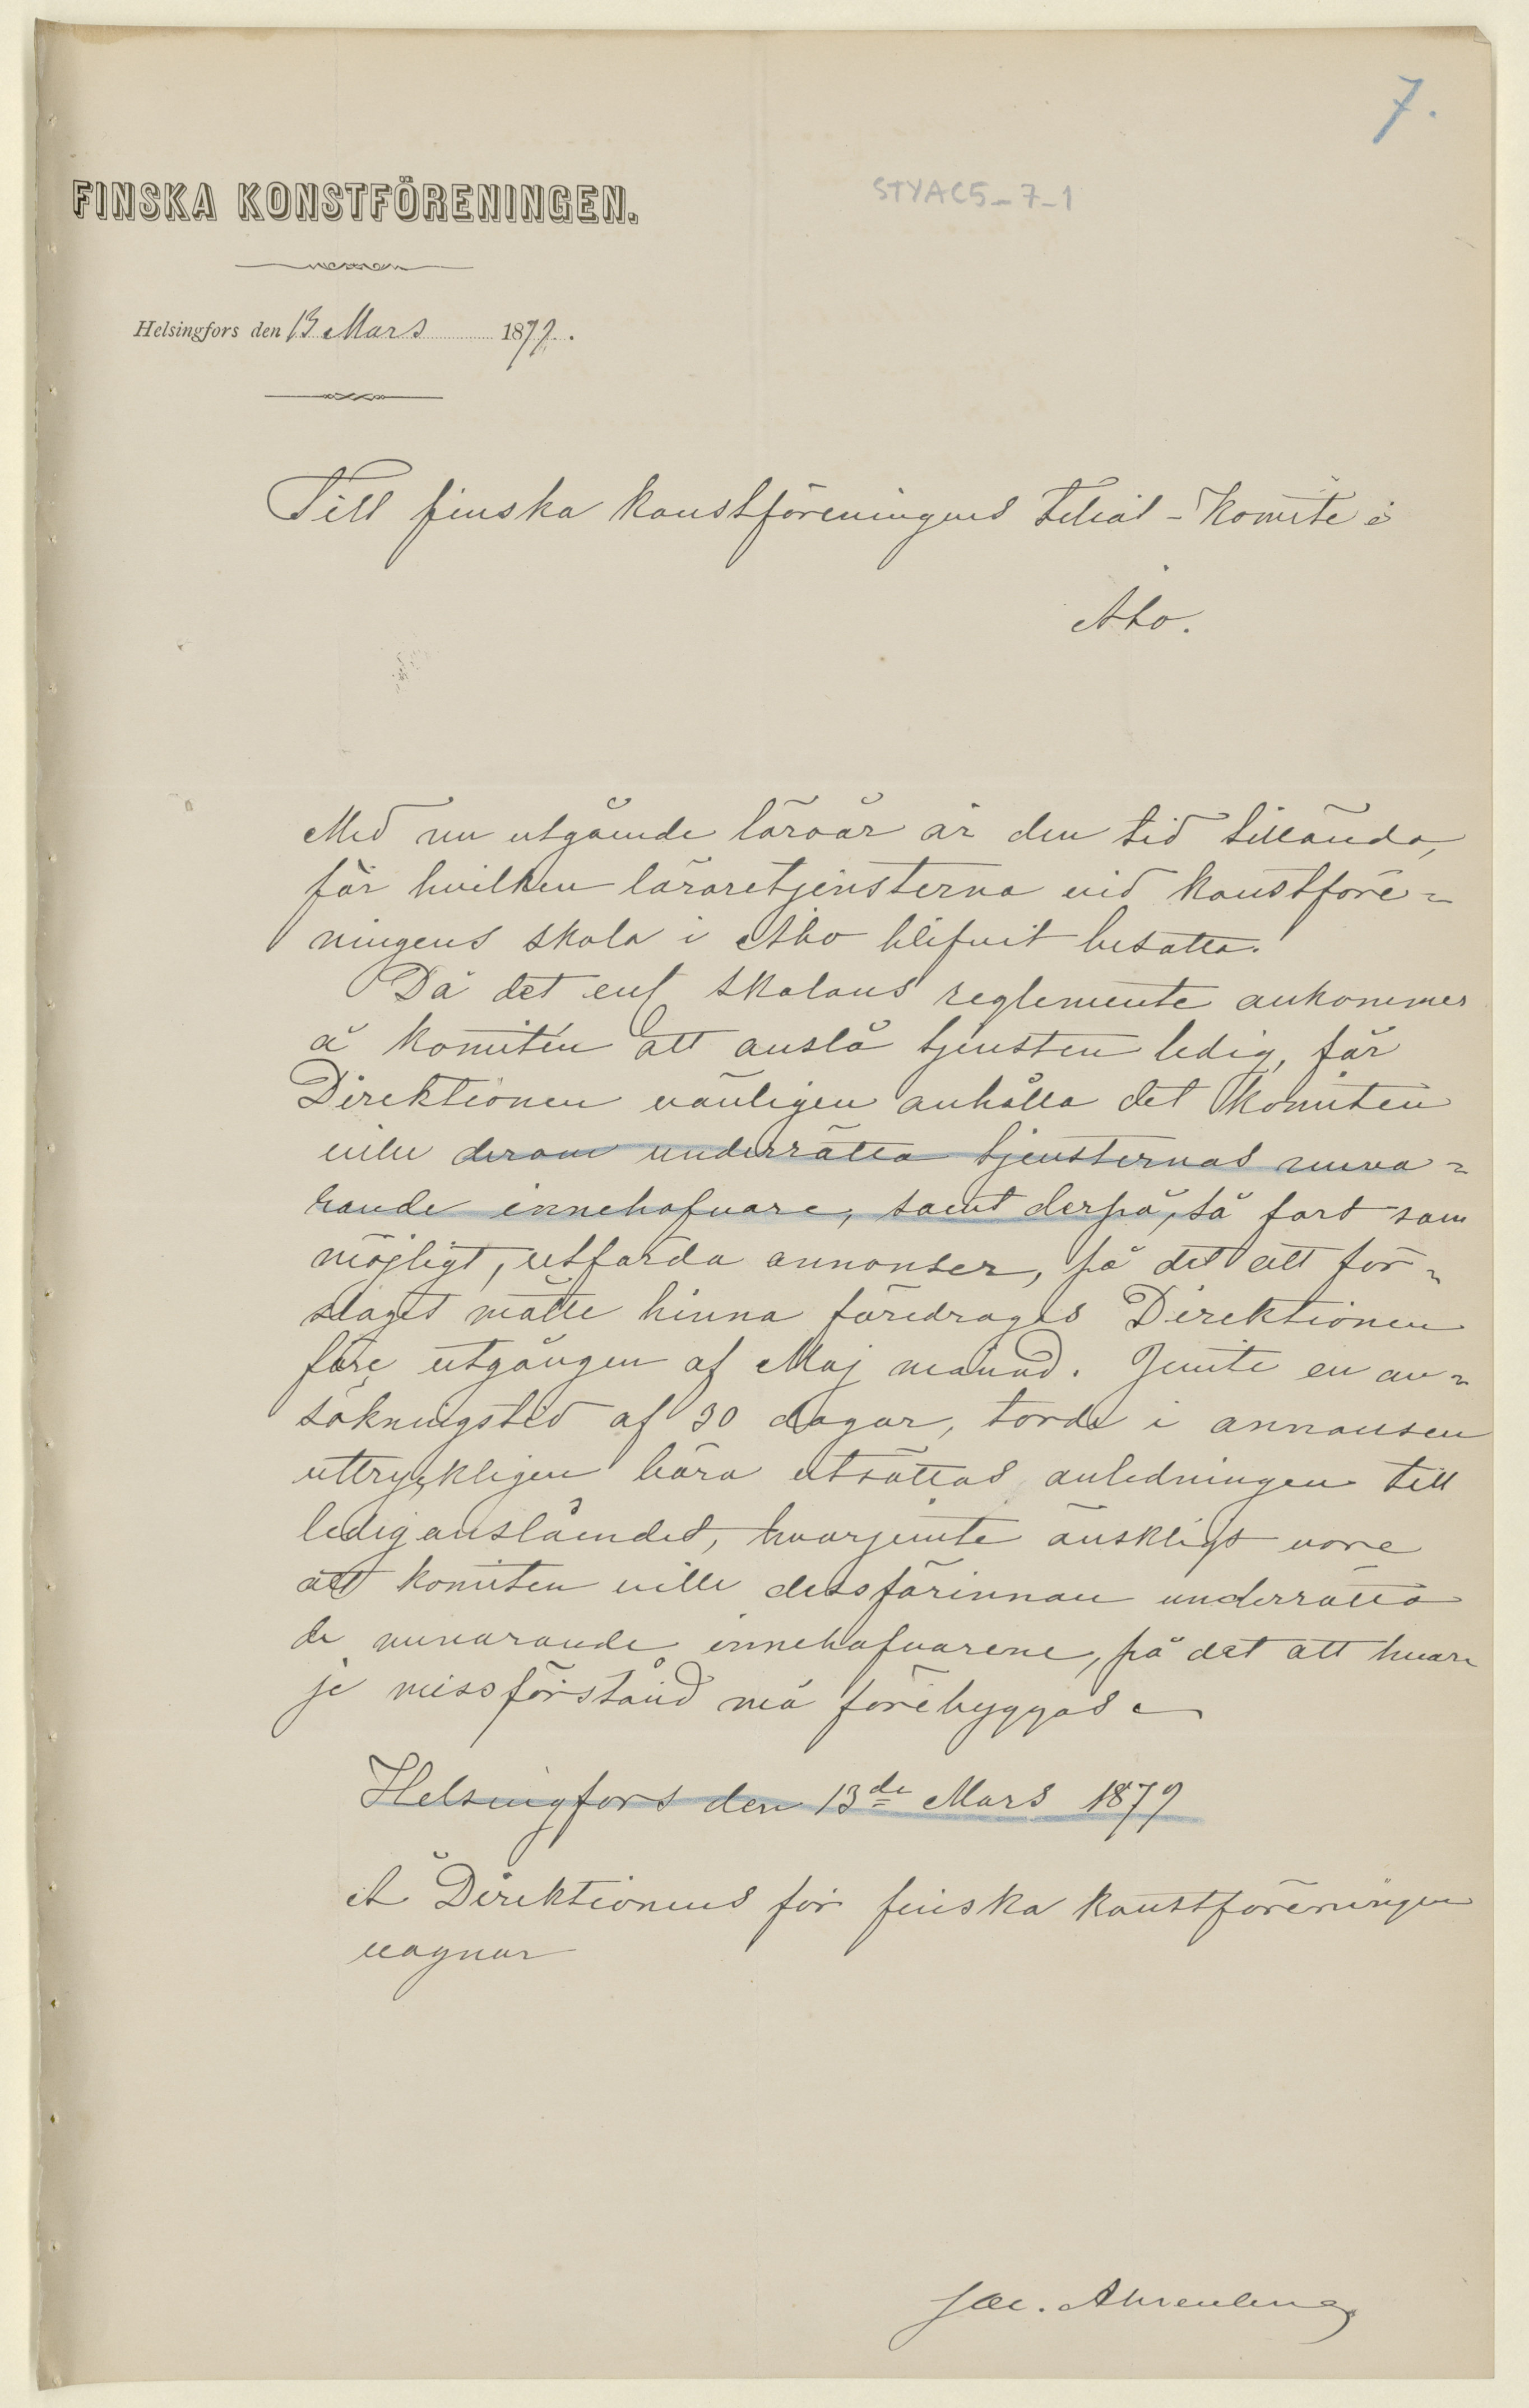 7.
STYAC5_7_1
FINSKA KONSTFÖRENINGEN.
Helsingfors den 13 Mars 1879.
Till finska konstföreningens Filial-Komite i
Åbo.
Med nu utgående läroår är den tid tilländа,
för hvilken läraretjensterna vid konstföre=
ningens skola i Åbo blifvit besatta.
Då det enl skolans reglemente ankommer
å komitén att anslå tjensten ledig, får
Direktionen vänligen anhålla det Komiten
ville derom underrätta tjensternas nuva=
rande innehafvare, samt derpå, så fort som
möjligt, utfärda annonser, på det att för=
slaget måtte hinna föredragas Direktionen
före utgången af Maj månad. Jemte en an=
sökningstid af 30 dagar, torde i annonsen
uttryckligen böra utsättas anledningen till
lediganslåendet, hvarjemte önskligt vore
att komiten ville dessförinnan underrätta
de nuvarande innehafvarene, på det att hvar=
je missförstånd må förebyggas.
Helsingfors den 13de Mars 1879
Å Direktionens för finska konstföreningen
vägnar
Jac. Ahrenberg